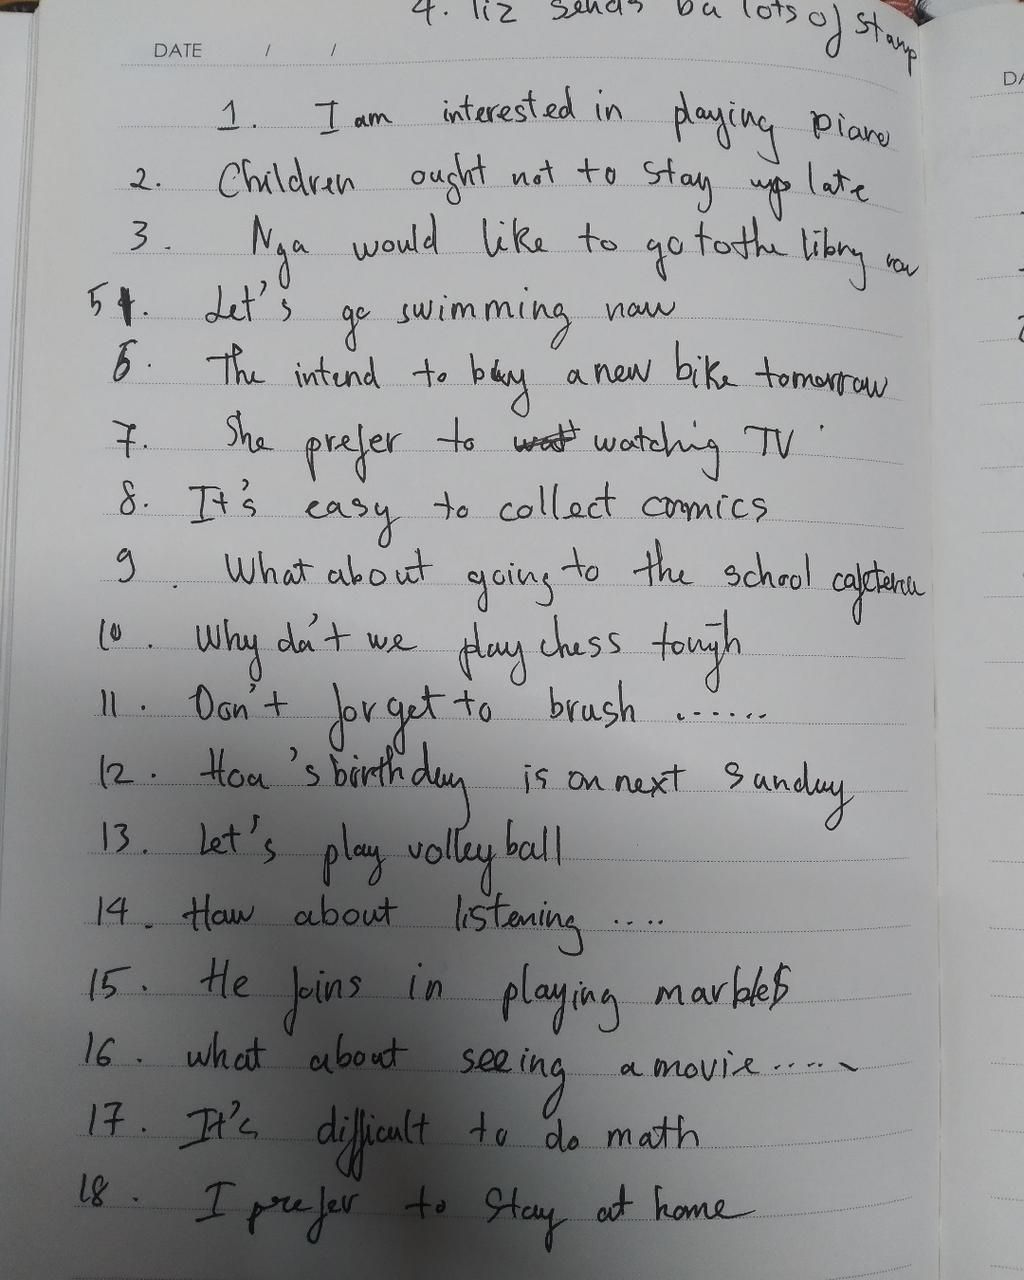 4. liz sends ba lots of stamp
DATE / /
DA
1. I am interested in playing piano
2. Children ought not to stay up late
3. Nga would like to go to the libry now
5. Let's go swimming now
6. The intend to buy a new bike tomorrow
7. She prefer to watching TV
8. It's easy to collect comics
9. What about going to the school cafeteria
10. Why don't we play chess
11. Don't forget to brush ......
12. Hoa's birthday is on next Sunday
13. Let's play volleyball
14. How about listening ....
15. He joins in playing marbles
16. what about seeing a movie .....
17. It's difficult to do math
18. I prefer to stay at home